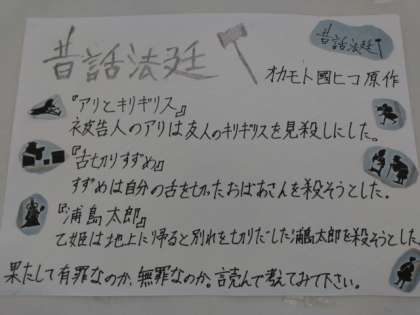 昔話法廷
昔話法廷
オカモト國ヒコ原作
『アリとキリギリス』
被告人のアリは友人のキリギリスを見殺しにした。
『舌切りすずめ』
すずめは自分の舌を切ったおばあさんを殺そうとした。
『浦島太郎』
乙姫は地上に帰ると別れを切りだした浦島太郎を殺そうとした。
果たして有罪なのか、無罪なのか。読んで考えてみて下さい。